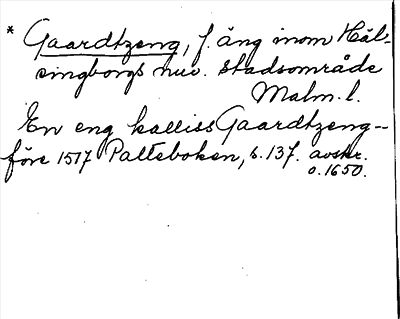 * Gaardtzeng, f. äng inom Häl-
singborgs nuv. stadsområde
Malm. l.
En eng kalliss Gaardtzeng—
före 1517 Palteboken, s. 137. avskr.
o. 1650.